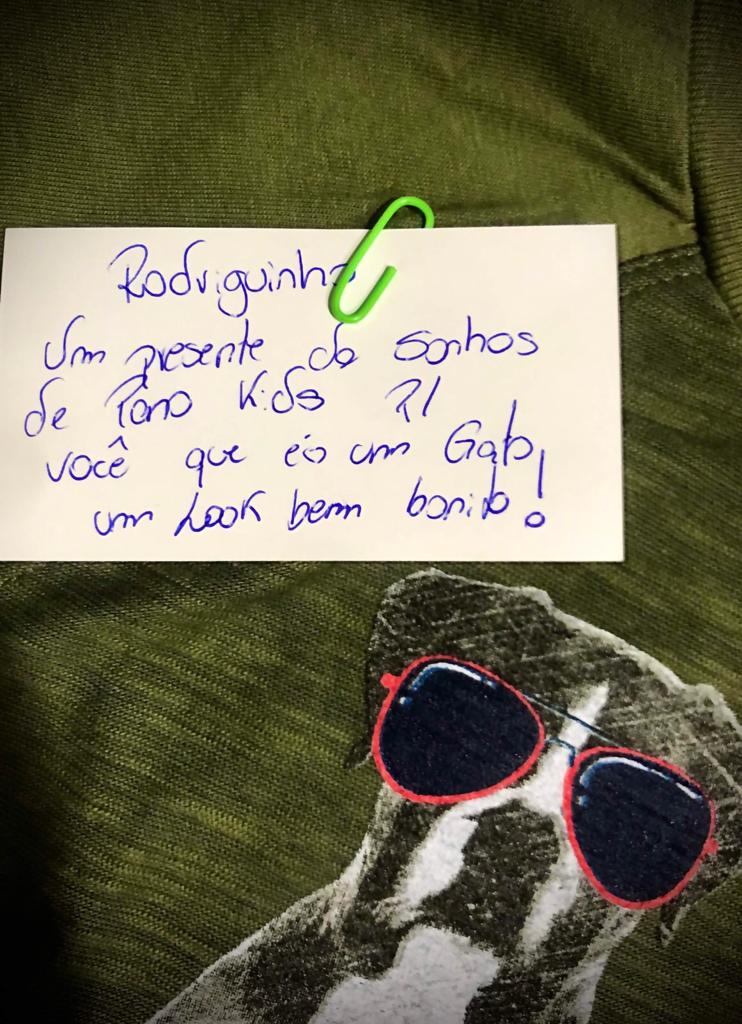 Rodriguinho
Um presente da Sonhos
de Pano Kids P/
você que és um Gato,
um Look bem bonito!